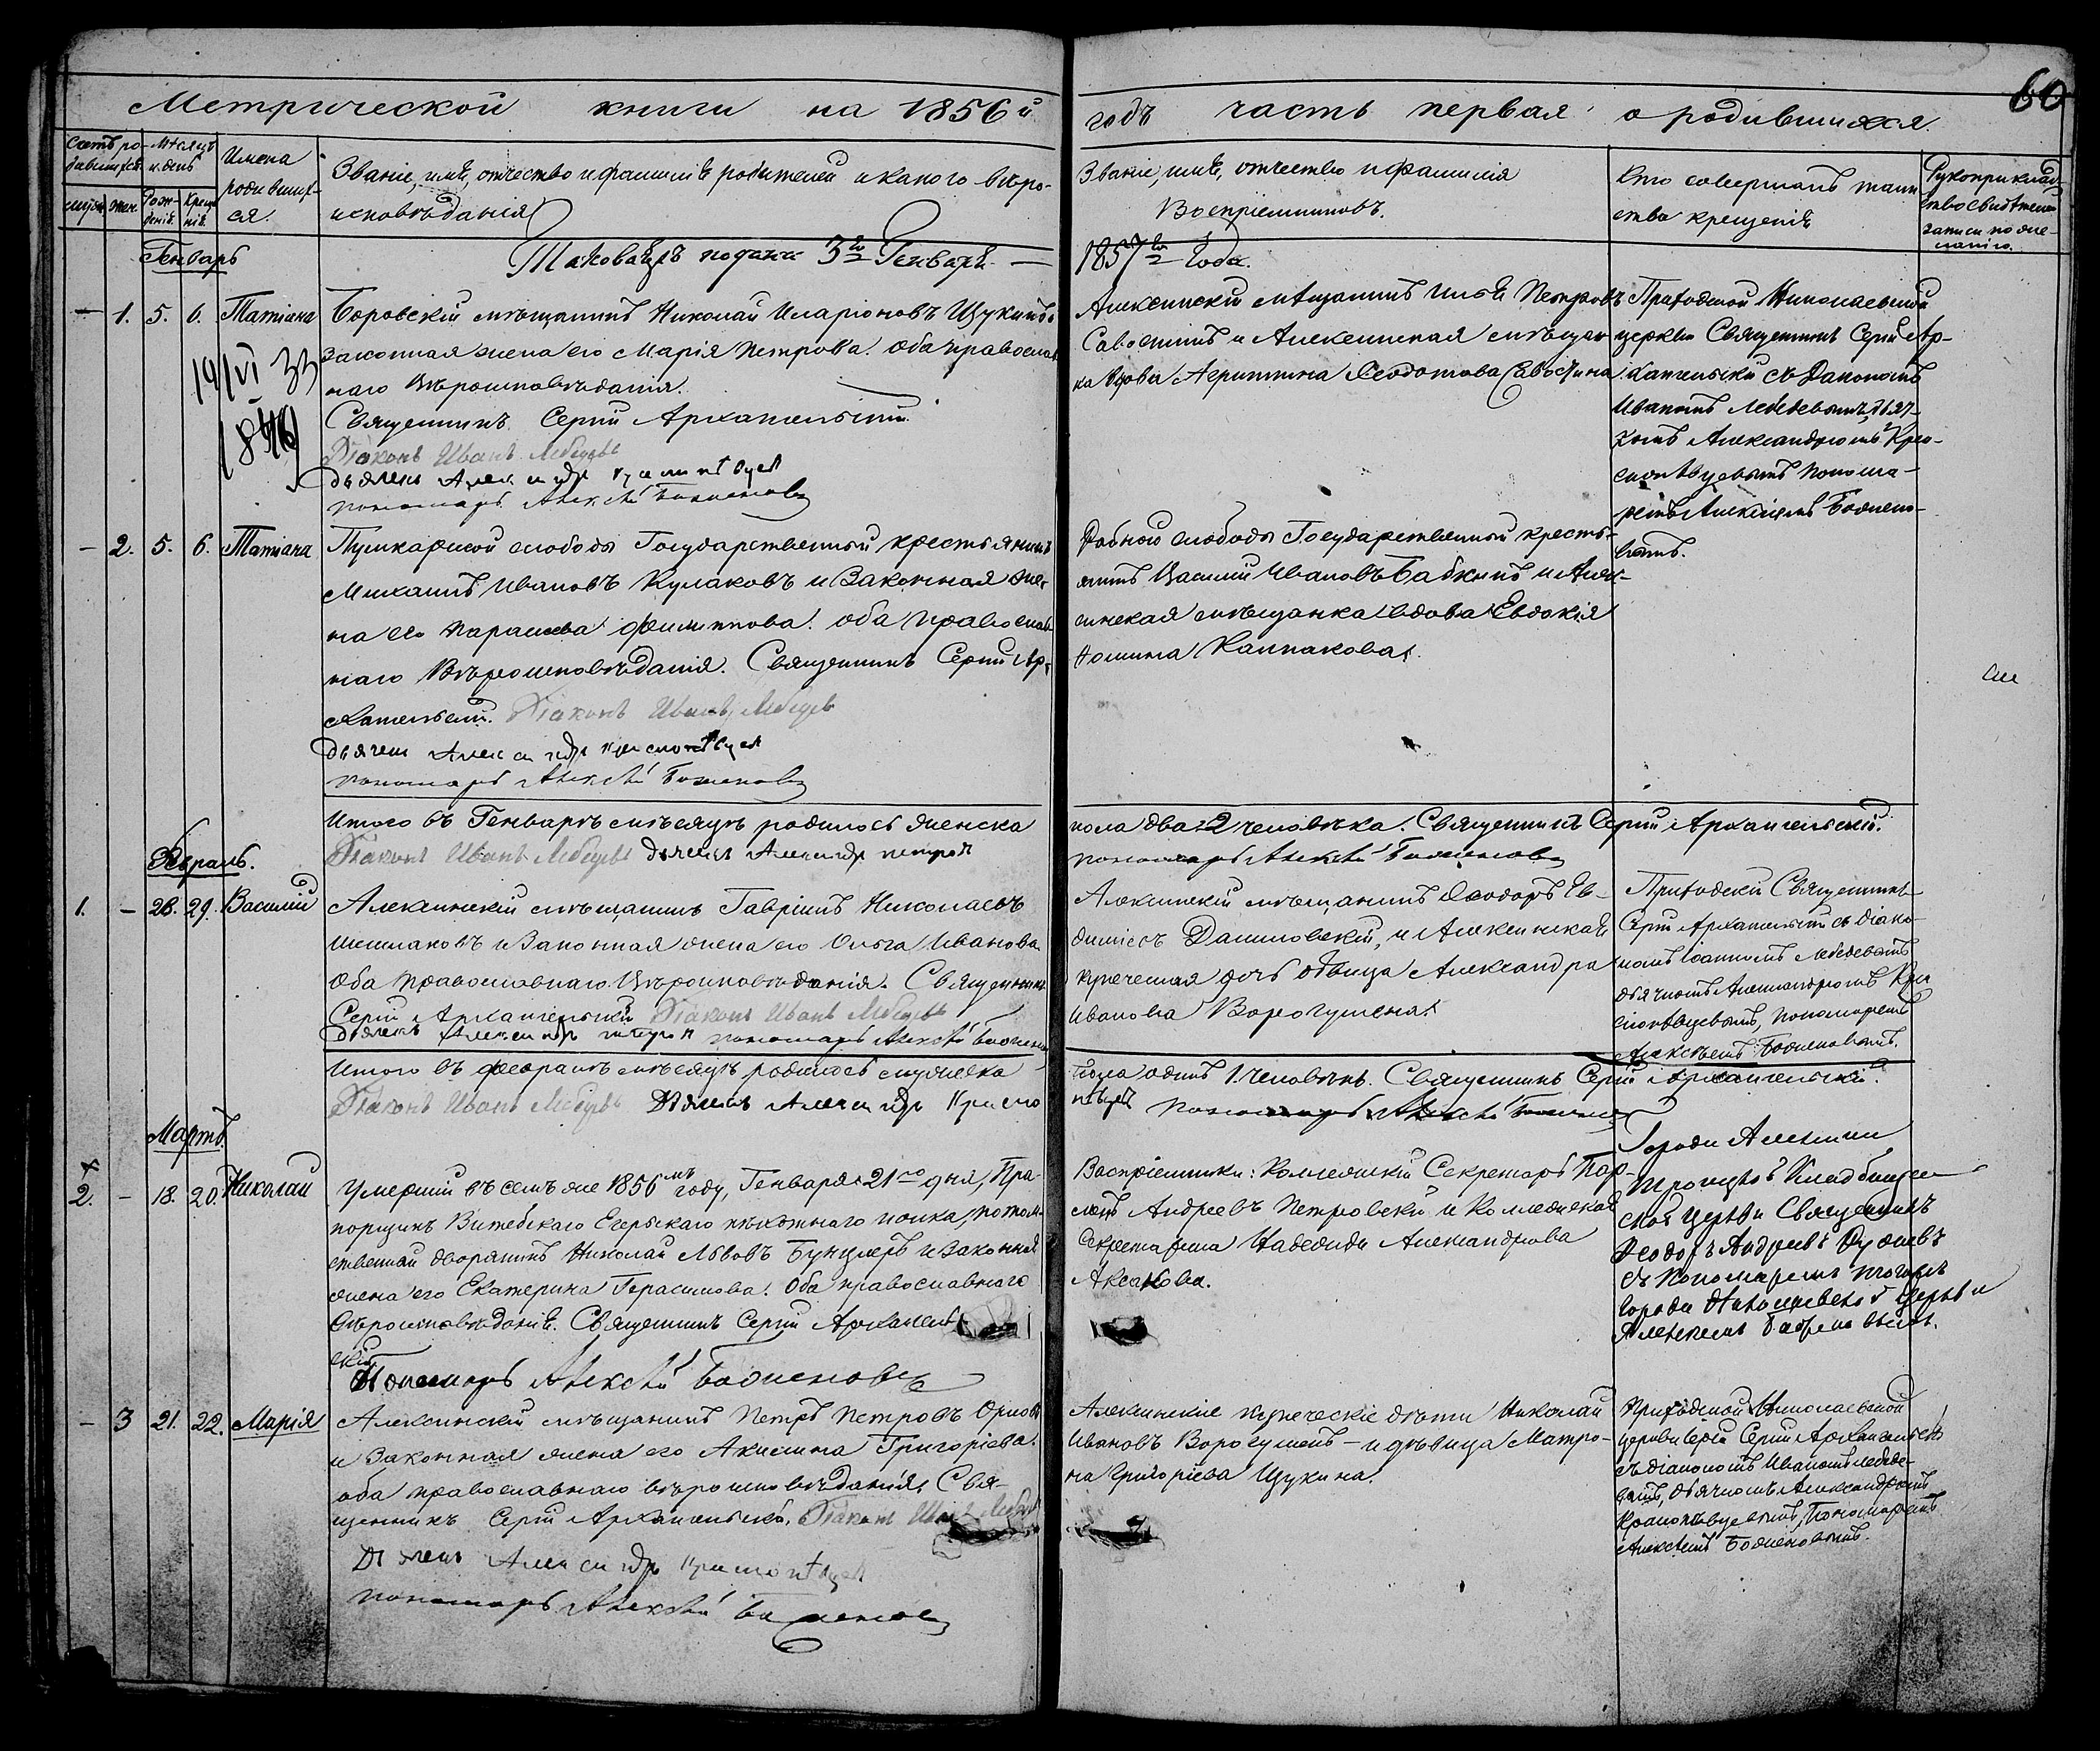 Метрической книги на 1856й
годъ часть первая о родившихся.
60
Счетъ ро-
дившихся
Мѣсяцъ
и день
Имена
родивших-
ся.
Званіе, имя, отчество и фамилія родителей и какого вѣро-
исповѣданія
муж. жен.
Рож-
денія.
Креще-
нія.
Званіе, имя, отчество и фамилія
Воспріемниковъ.
Кто совершалъ таин
ство крещенія
Рукоприклад-
ство свидѣтелей
записи по же-
ланію.
Генварь
Таковаяжъ подана 3го Генваря
1857го Года.
— 1. 5. 6. Татіана
Боровскій мѣщанинъ Николай Иларіоновъ Щукинъ и
законная жена его Марія Петрова. Оба православ
наго Вѣроисповѣданія.
Священникъ Сергій Архангельскій.
Діаконъ Иванъ Лебедевъ
дьячекъ Александръ Краснопѣвцевъ
пономарь Алексѣй Баженовъ
Алексинскій мѣщанинъ Илья Петровъ
Савостинъ и Алексинская мѣщан
ка Вдова Агриппина Ѳеодотова Савостина
Приходской Николаевской
церкви Священникъ Сергій Ар-
хангельскій съ Діакономъ
Иваномъ Лебедевымъ, дьяч-
комъ Александромъ Крас-
нопѣвцевымъ Понома-
ремъ Алексѣемъ Бажено-
вымъ.
19/VI 33
— 2. 5. 6. Татіана
Пушкарской слободы Государственный крестьянинъ
Михаилъ Ивановъ Кулаковъ и Законная же-
на его Параскева Филиппова. Оба Православ
наго Вѣроисповѣданія. Священникъ Сергій Ар-
хангельскій. Діаконъ Иванъ Лебедевъ
дьячекъ Александръ Краснопѣвцевъ
пономарь Алексѣй Баженовъ
слободы Государственный кресть-
янинъ Василій Ивановъ Бабкинъ и Алек-
синская мѣщанка вдова Евдокія
Фомина Калпакова.
Итого въ Генварѣ мѣсяцѣ родилось женска
Діаконъ Иванъ Лебедевъ дьячекъ Александръ
пола два 2 человѣка. Священникъ Сергій Архангельскій.
пономарь Алексѣй Баженовъ
Февраль.
1. — 28. 29. Василій
Алексинскій мѣщанинъ Гавріилъ Николаевъ
и Законная жена его Ольга Иванова
Оба православнаго Вѣроисповѣданія. Священникъ
Сергій Архангельскій Діаконъ Иванъ Лебедевъ
дьячекъ Александръ пономарь Алексѣй Баженовъ
Алексинскій мѣщанинъ Ѳеодоръ Ев-
Даниловскій, и Алексинская
купеческая дочь дѣвица Александра
Иванова Ворогушена.
Приходскій Священникъ
Сергій Архангельскій съ Діако-
номъ Іоанномъ Лебедевымъ
дьячкомъ Александромъ Крас
нопѣвцевымъ, Пономаремъ
Алексѣемъ Баженовымъ.
Итого въ февралѣ мѣсяцѣ родилось мужеска
Діаконъ Иванъ Лебедевъ Дьячекъ Александръ Красно
пола одинъ 1. человѣкъ. Священникъ Сергій Архангельскій.
пѣвцевъ пономарь Алексѣй Баженовъ
Мартъ.
2. — 18. 20. Николай
Умершій въ семъ же 1856мъ году, Генваря 21го дня, Пра-
порщикъ Витебскаго Егерьскаго пѣхотнаго полка, потом-
ственный дворянинъ Николай Львовъ и Законная
жена его Екатерина Герасимова. Оба православнаго
Вѣроисповѣданія. Священникъ Сергій Архангель
скій
Пономарь Алексѣй Баженовъ
Воспріемники: Коллежскій Секретарь
Андреевъ Петровскій и Коллежская
Секретарша Надежда Александрова
Аксакова.
Города Алексина
Троицкой Кладбищен
ской Церкви Священникъ
Ѳеодоръ Андреевъ
съ Пономаремъ тогожъ
города Николаевской церкви
Алексѣемъ Баженовымъ.
— 3 21. 22. Марія
Алексинскій мѣщанинъ Петръ Петровъ Орловъ
и Законная жена его Акилина Григорьева.
оба православнаго вѣроисповѣданія, Свя-
щенникъ Сергій Архангельскій. Діаконъ Иванъ Лебедевъ
Дьячекъ Александръ Краснопѣвцевъ
пономарь Алексѣй Баженовъ
Алексинскіе купеческіе дѣти Николай
Ивановъ Ворогушенъ — и дѣвица Матро-
на Григорьева Щукина.
Приходской Николаевской
церкви Сергій Архангельскій
съ діакономъ Иваномъ Лебеде-
вымъ, дьячкомъ Александромъ
Краснопѣвцевымъ, Пономаремъ
Алексѣемъ Баженовымъ.